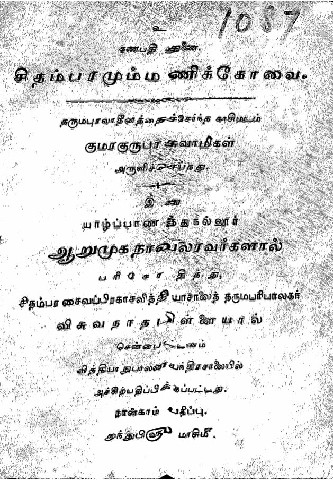 1087
உ
கணபதி துணை.
சிதம்பரமும்மணிக்கோவை.
தருமபுரவாதீனத்தைச்சேர்ந்த காசிமடம்
குமரகுருபர சுவாமிகள்
அருளிச்செய்தது.
இஃது
யாழ்ப்பாணத்துநல்லூர்
ஆறுமுகநாவலரவர்களால்
பரிசோதித்து,
சிதம்பர சைவப்பிரகாசவித்தியாசாலைத் தருமபரிபாலகர்
விசுவநாதபிள்ளையால்
சென்னபட்டணம்
வித்தியாநுபாலனயந்திரசாலையில்
அச்சிற்பதிப்பிக்கப்பட்டது.
நான்காம் பதிப்பு.
மாசிமீ.